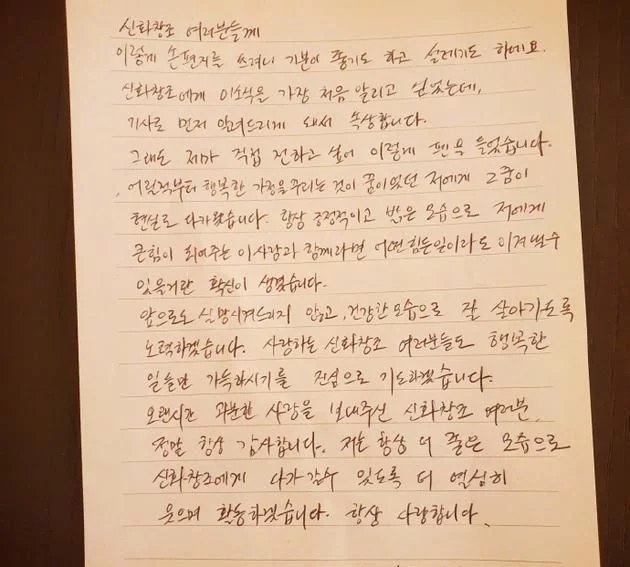 신화창조 여러분들께
이렇게 손편지를 쓰려니 기분이 좋기도 하고 설레기도 하네요.
신화창조에게 이소식을 가장 처음 알리고 싶었는데,
기사로 먼저 알려드리게 돼서 속상합니다.
그래도 제가 직접 전하고 싶어 이렇게 펜을 들었습니다.
어릴적부터 행복한 가정을꾸리는 것이 꿈이었던 저에게 그꿈이
현실로 다가왔습니다. 항상 긍정적이고 밝은 모습으로 저에게
큰힘이 되어주는 이사람과 함께라면 어떤힘든일이라도 이겨낼수
있을거란 확신이 생겼습니다.
앞으로도 실망시켜드리지 않고, 건강한모습으로 잘 살아가도록
노력하겠습니다. 사랑하는 신화창조 여러분들도 행복한
일들만 가득하시기를 진심으로 기도하겠습니다.
오랜시간 과분한 사랑을 보내주신 신화창조 여러분,
정말 항상 감사합니다. 저는 항상 더 좋은 모습으로
신화창조에게 다가갈수 있도록 더 열심히
웃으며 활동하겠습니다. 항상 사랑합니다.